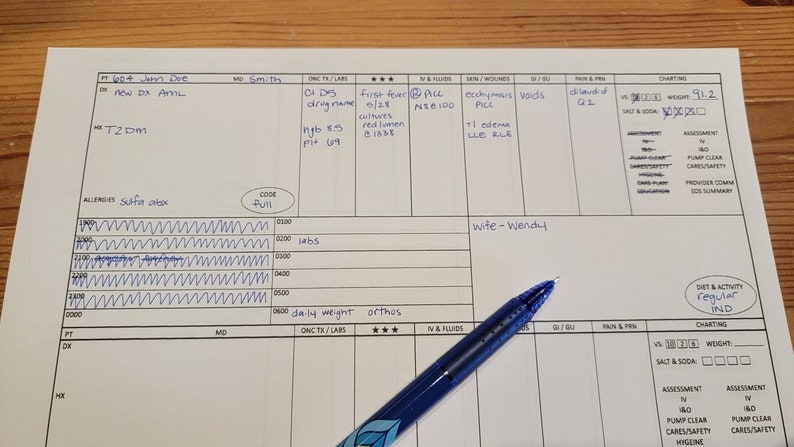 PT 604 John Doe MD Smith ONC TX / LABS ★★★ IV & FLUIDS SKIN / WOUNDS GI / GU PAIN & PRN CHARTING
DX new DX AML
HX T2DM
ALLERGIES sulfa abx
CODE
full
C1 D5
drug name
hgb 8.5
plt 69
first fever
5/28
cultures
red lumen
@ 1338
Ⓡ PICC
NS@100
ecchymosis
PICC
+1 edema
LLE RLE
voids
dilaudid
Q2
VS: 10 2 6 WEIGHT: 91.2
SALT & SODA:
ASSESSMENT ASSESSMENT
IV IV
I&O I&O
PUMP CLEAR PUMP CLEAR
CARES/SAFETY CARES/SAFETY
HYGEINE
CARE PLAN PROVIDER COMM
EDUCATION EOS SUMMARY
1900
2000
2100
2200
2300
0000
0100
0200 labs
0300
0400
0500
0600 daily weight orthos
wife - Wendy
DIET & ACTIVITY
regular
IND
PT MD ONC TX / LABS ★★★ IV & FLUIDS GI / GU PAIN & PRN CHARTING
DX
HX
VS: 10 2 6 WEIGHT:
SALT & SODA:
ASSESSMENT ASSESSMENT
IV IV
I&O I&O
PUMP CLEAR PUMP CLEAR
CARES/SAFETY CARES/SAFETY
HYGEINE